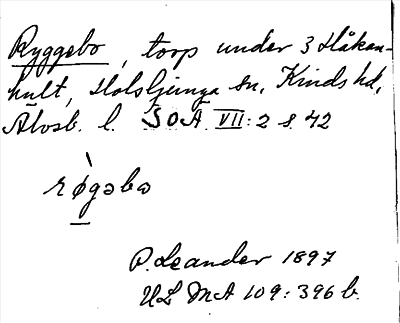 Ryggebo, torp under 3 Håkan-
hult, Holsljunga sn, Kinds hd,
Älvsb. l. SOÄ VII:2 s 42
rø̀gəbω
P. Leander 1897
ULMA 109:396 b.